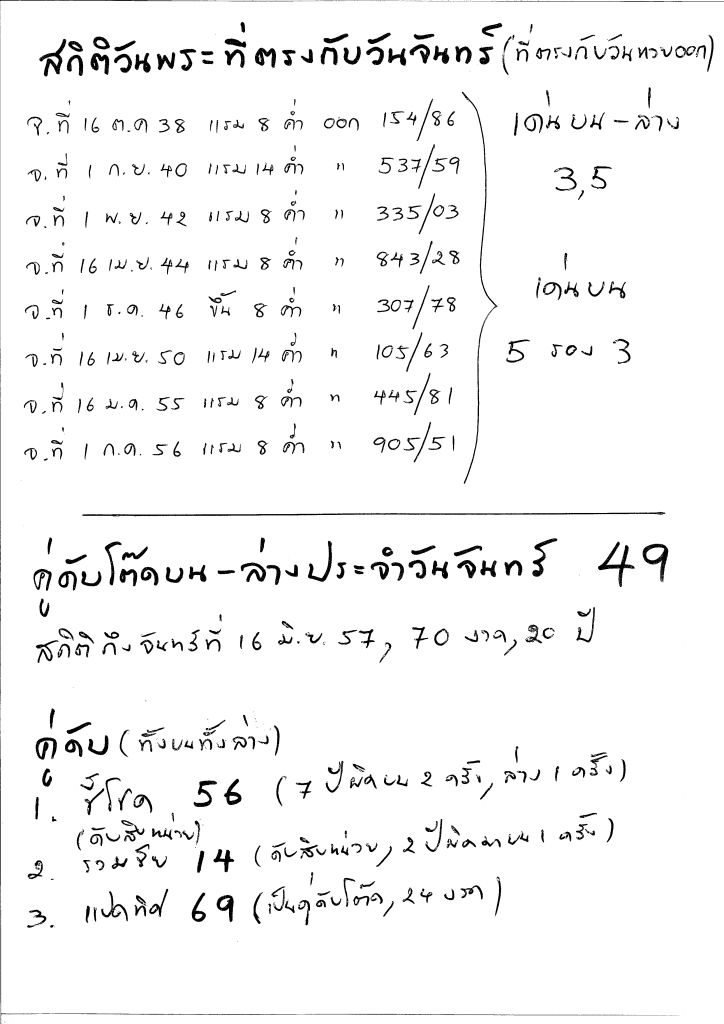 สถิติวันพระที่ตรงกับวันจันทร์ (ที่ตรงกับวันหวยออก)
จ.ที่ 16 ต.ค 38 แรม 8 ค่ำ ออก 154/86
จ.ที่ 1 ก.ย. 40 แรม 14 ค่ำ " 537/59
จ.ที่ 1 พ.ย. 42 แรม 8 ค่ำ " 335/03
จ.ที่ 16 เม.ย. 44 แรม 8 ค่ำ " 843/28
จ.ที่ 1 ธ.ค. 46 ขึ้น 8 ค่ำ " 307/78
จ.ที่ 16 เม.ย. 50 แรม 14 ค่ำ " 105/63
จ.ที่ 16 ม.ค. 55 แรม 8 ค่ำ " 445/81
จ.ที่ 1 ก.ค. 56 แรม 8 ค่ำ " 905/51
เด่นบน-ล่าง
3,5
เด่นบน
5 รอง 3
คู่ดับโต๊ดบน-ล่างประจำวันจันทร์ 49
สถิติถึงจันทร์ที่ 16 มิ.ย. 57, 70 งวด, 20 ปี
คู่ดับ (ทั้งบนทั้งล่าง)
1. ชี้โชค 56 (7 ปีผิดบน 2 ครั้ง, ล่าง 1 ครั้ง)
(ดับสิบหน่วย)
2. รวมชัย 14 (ดับสิบหน่วย, 2 ปีผิดมาบน 1 ครั้ง)
3. แปดทิศ 69 (เป็นคู่ดับโต๊ด, 24 งวด)